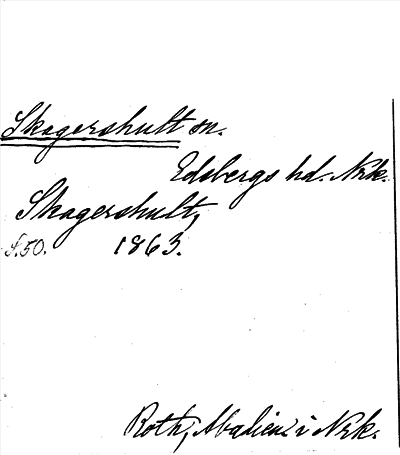 Skagershult sn.
Edsbergs hd. Nrk.
Skagershult,
s.50. 1863.
Roth, i Nrk.